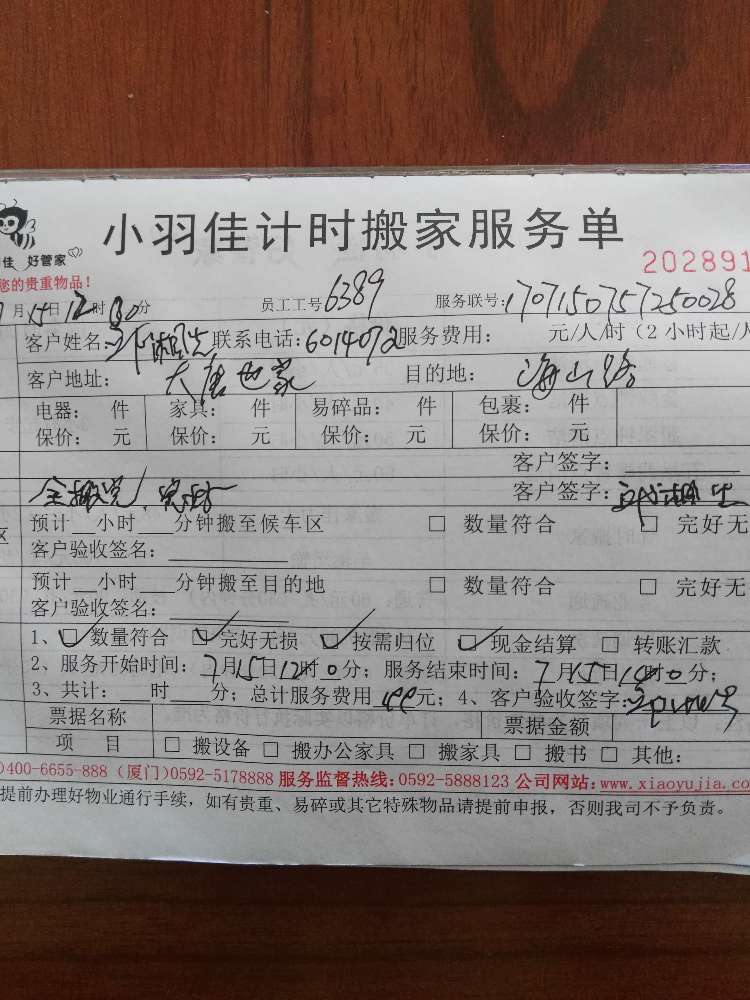 小羽佳计时搬家服务单
佳 好管家
202891
您的贵重物品！
月15日12时30分 员工工号6389 服务联号:1707150757250028
客户姓名: 联系电话:6014072 服务费用: 元/人/时（2小时起/人
客户地址: 大唐世家 目的地: 海山路
电器: 件 家具: 件 易碎品: 件 包裹: 件
保价: 元 保价: 元 保价: 元 保价: 元
客户签字:
全搬完! 客户签字:
区 预计__小时__分钟搬至候车区 □ 数量符合 □ 完好无
客户验收签名:
预计__小时__分钟搬至目的地 □ 数量符合 □ 完好无
客户验收签名:
1、☑数量符合 ☑完好无损 ☑按需归位 ☑现金结算 □ 转账汇款
2、服务开始时间: 7月15日12时0分; 服务结束时间: 7月15日 时0分;
3、共计: ___时___分; 总计服务费用 元; 4、客户验收签字:
票据名称 票据金额
项 目 □ 搬设备 □ 搬办公家具 □ 搬家具 □ 搬书 □ 其他:
)400-6655-888（厦门)0592-5178888 服务监督热线:0592-5888123 公司网站:www.xiaoyujia.com
提前办理好物业通行手续，如有贵重、易碎或其它特殊物品请提前申报，否则我司不予负责。